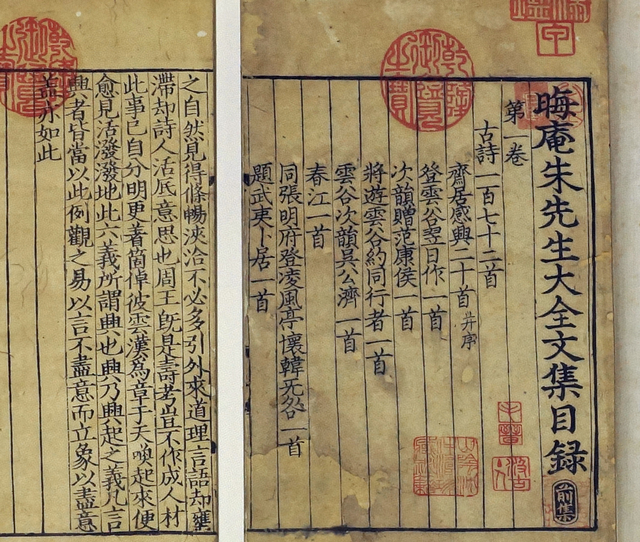 晦庵朱先生大全文集目録 前集
第一卷
古詩一百七十二首
齋居感興二十首 并序
登雲谷翌日作一首
次韻贈范康侯一首
將遊雲谷約同行者一首
雲谷次韻吳公濟一首
春江一首
同張明府登凌風亭懷韓旡咎一首
題武夷卜居一首
乾隆御覽之寶
子晉
之自然見得條暢浹洽不必多引外來道理言語却壅
滯却詩人活底意思也周王旣是壽考豈不作成人材
此事已自分明更著箇倬彼雲漢爲章于天喚起來便
愈見活潑潑地此六義所謂興也興乃興起之義凡言
興者皆當以此例觀之易以言不盡意而立象以盡意
盖亦如此